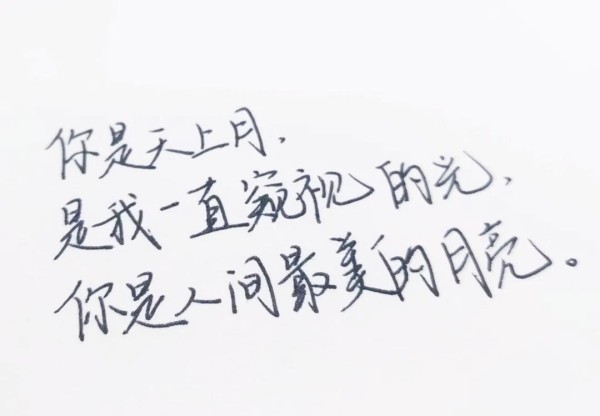 你是天上月,
是我一直窥视的光,
你是人间最美的月亮。